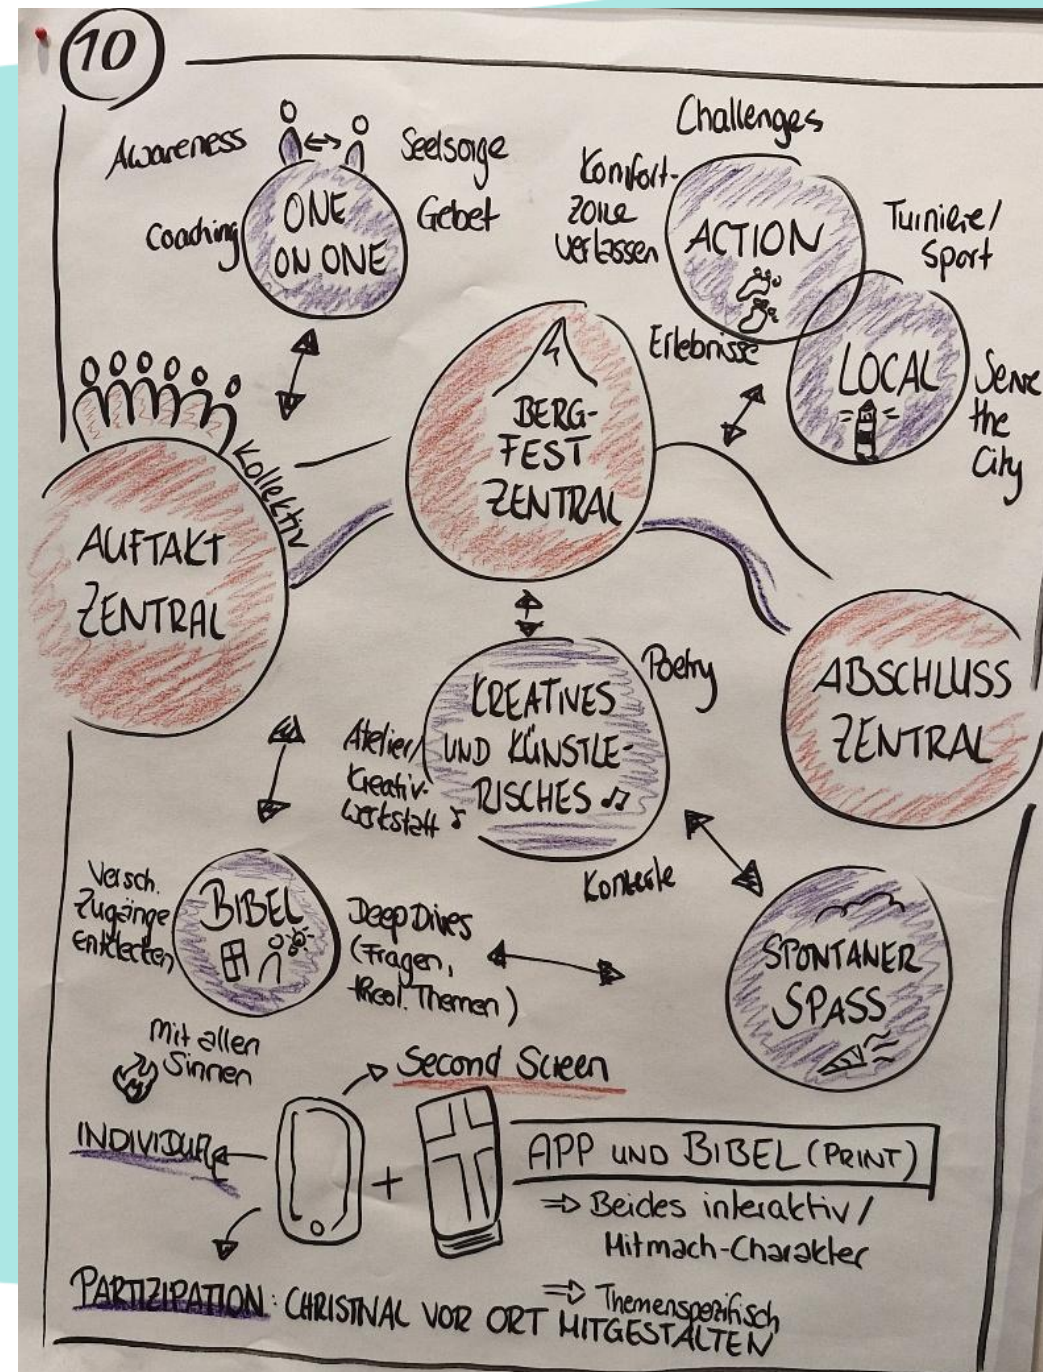 10
Awareness
Seelsorge
Coaching
Gebet
ONE
ON ONE
Challenges
Komfort-
zone
verlassen
ACTION
Turniere/
Sport
Erlebnisse
LOCAL
Serve
the
City
Kollektiv
AUFTAKT
ZENTRAL
BERG-
FEST
ZENTRAL
ABSCHLUSS
ZENTRAL
KREATIVES
UND KÜNSTLE-
RISCHES
Poetry
Atelier/
Kreativ-
werkstatt
Konzerte
BIBEL
Versch.
Zugänge
entdecken
Deep Dives
(Fragen,
theol. Themen)
Mit allen
Sinnen
SPONTANER
SPASS
Second Screen
INDIVIDUELL
+
APP UND BIBEL (PRINT)
⇒ Beides interaktiv/
Mitmach-Charakter
⇒ Themenspezifisch
PARTIZIPATION: CHRISTIVAL VOR ORT MITGESTALTEN